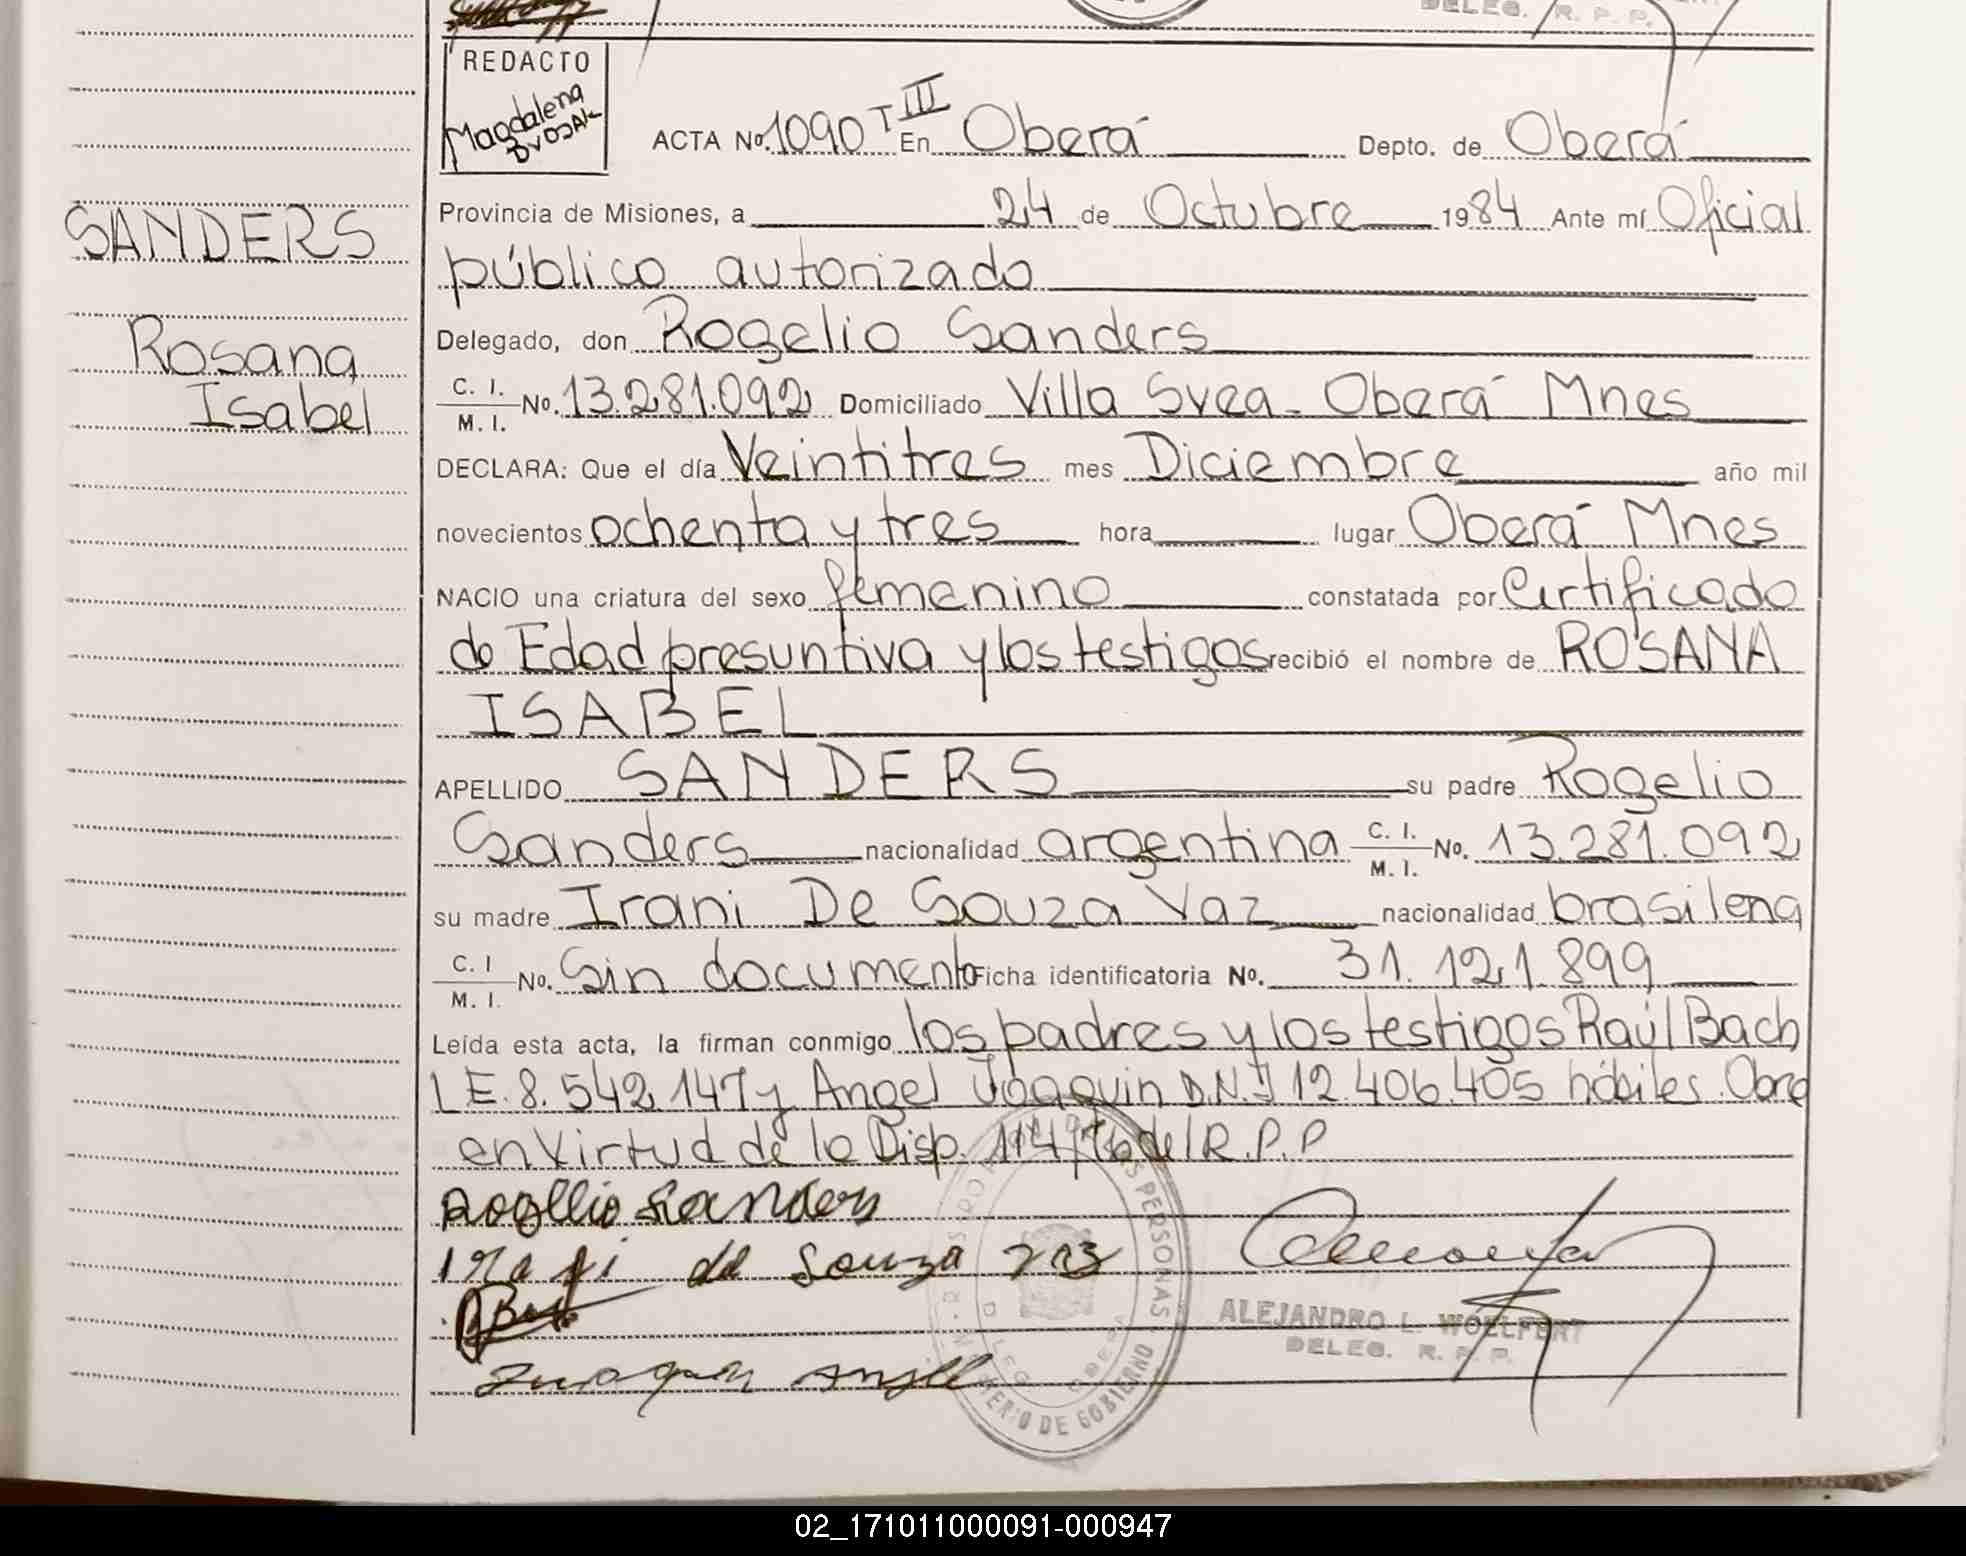 DELEG. R. P. P.
REDACTO
Magdalena
ACTA No. 1090 T III En Oberá Depto. de Oberá
SANDERS
Rosana
Isabel
Provincia de Misiones, a 24 de Octubre 1984 Ante mí Oficial
público autorizado
Delegado, don Rogelio Sanders
C. I. M. I. No. 13.281.092 Domiciliado Villa Svea - Oberá Mnes
DECLARA: Que el día Veintitres mes Diciembre año mil
novecientos ochenta y tres hora lugar Oberá Mnes
NACIO una criatura del sexo femenino constatada por Certificado
de Edad presuntiva y los testigos recibió el nombre de ROSANA
ISABEL
APELLIDO SANDERS su padre Rogelio
Sanders nacionalidad argentina C. I. M. I. No. 13.281.092
su madre Irani De Souza Vaz nacionalidad brasilena
C. I M. I. No. Sin documento Ficha identificatoria No. 31.121.899
Leída esta acta, la firman conmigo los padres y los testigos Raúl Bach
L E. 8. 542.147 y Angel Joaquin D.N.I 12.406.405 hábiles. Obra
en Virtud de la Disp. 114/76 del R. P. P
Rogelio Sanders
Irani de Souza
Juaquin Angel
ALEJANDRO L. WOELFERT
DELEG. R. P. P.
DE LAS PERSONAS - MINISTERIO DE GOBIERNO
DELEG. OBERA
02_171011000091-000947